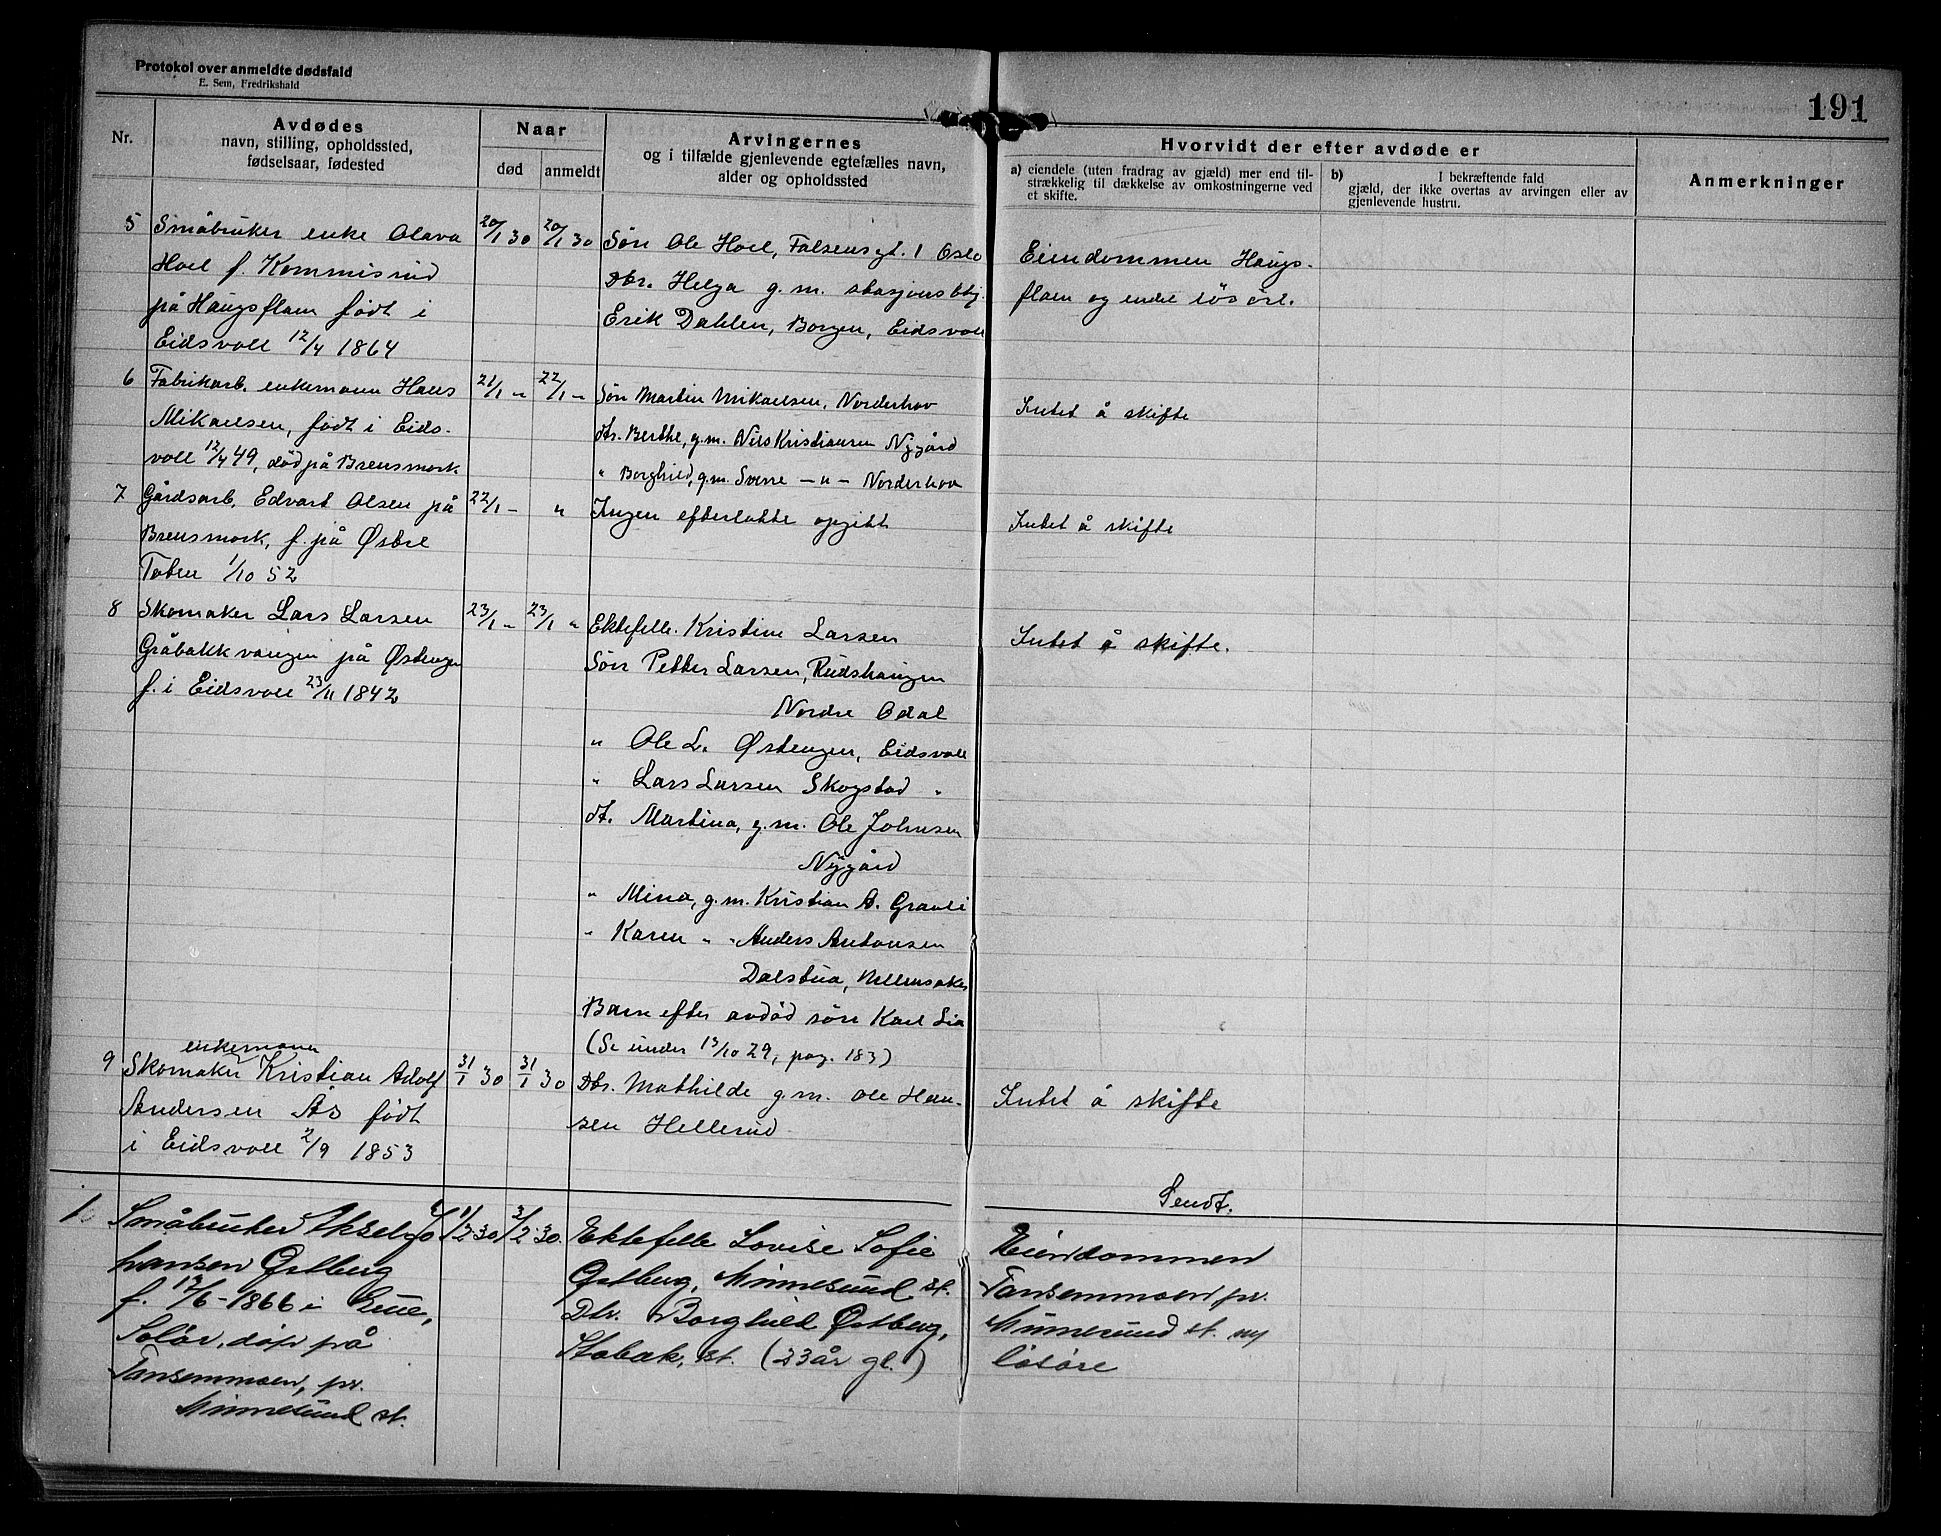 Protokol over anmeldte dødsfald
E. Sem, Fredrikshald
191
Nr.
Avdødes
navn, stilling, opholdssted,
fødselsaar, fødested
Naar
død
anmeldt
Arvingernes
og i tilfælde gjenlevende egtefælles navn,
alder og opholdssted
Hvorvidt der efter avdøde er
a) eiendele (uten fradrag av gjæld) mer end til-
strækkelig til dækkelse av omkostningerne ved
et skifte.
b) I bekræftende fald
gjæld, der ikke overtas av arvingen eller av
gjenlevende hustru.
Anmerkninger
5 Småbruker enke Olava
Hoel f. Kommisrud
på Haugsflaen født i
Eidsvoll 12/4 1864
20/1 30 20/1 30
Søn Ole Hoel, Falsensgt. 1 Oslo
Dtr. Helga g.m. stasjonsbtj.
Erik Dahlen, Borgen, Eidsvoll
Eiendommen Haugs-
flaen og endel løsøre.
6 Fabrikarb. enkemann Hans
Mikaelsen, født i Eids-
voll 12/4 49, død på Brensmork
21/1 " 22/1 "
Søn Martin Mikaelsen, Norderhov
dt. Berthe, g.m. Nils Kristiansen Nygård
" Borghild, g.m. Sverre — " — Norderhov
Intet å skifte
7 Gårdsarb. Edvart Olsen på
Brensmork, f. på Østre
Toten 1/10 52
22/1 - "
Ingen efterlatte opgitt
Intet å skifte
8 Skomaker Lars Larsen
Gråbakkvangen på Østengen
f. i Eidsvoll 23/11 1842
23/1 " 23/1 "
Ektefelle. Kristine Larsen
Søn Petter Larsen, Rudshaugen
Nordre Odal
" Ole L. Østengen, Eidsvoll
" Lars Larsen Skogstad "
dt. Martina, g.m. Ole Johnsen
Nygård
" Mina, g.m. Kristian A. Gravli
" Karen " " Anders Antonsen
Dalstua, Ullensaker
Barn efter avdød søn Karl Lia
(Se under 13/10 29, pag. 183)
Intet å skifte.
9 Skomaker enkemann Kristian Adolf
Andersen Ås født
i Eidsvoll 2/9 1853
31/1 30 31/1 30
Dtr. Mathilde g.m. Ole Han-
sen Hellerud
Intet å skifte
Sendt.
1. Småbruker Aksel Jo
hansen Østberg
f. 12/6 - 1866 i Grue,
Solør, død på
Tansemmoen, pr.
Minnesund st.
1/2 30 3/2 30.
Ektefelle Lovise Sofie
Østberg, Minnesund st.
Dtr. Borghild Østberg,
Stabæk, st. (23 år gl.)
Eiendommen
Tansemmoen pr.
Minnesund st. og
løsøre